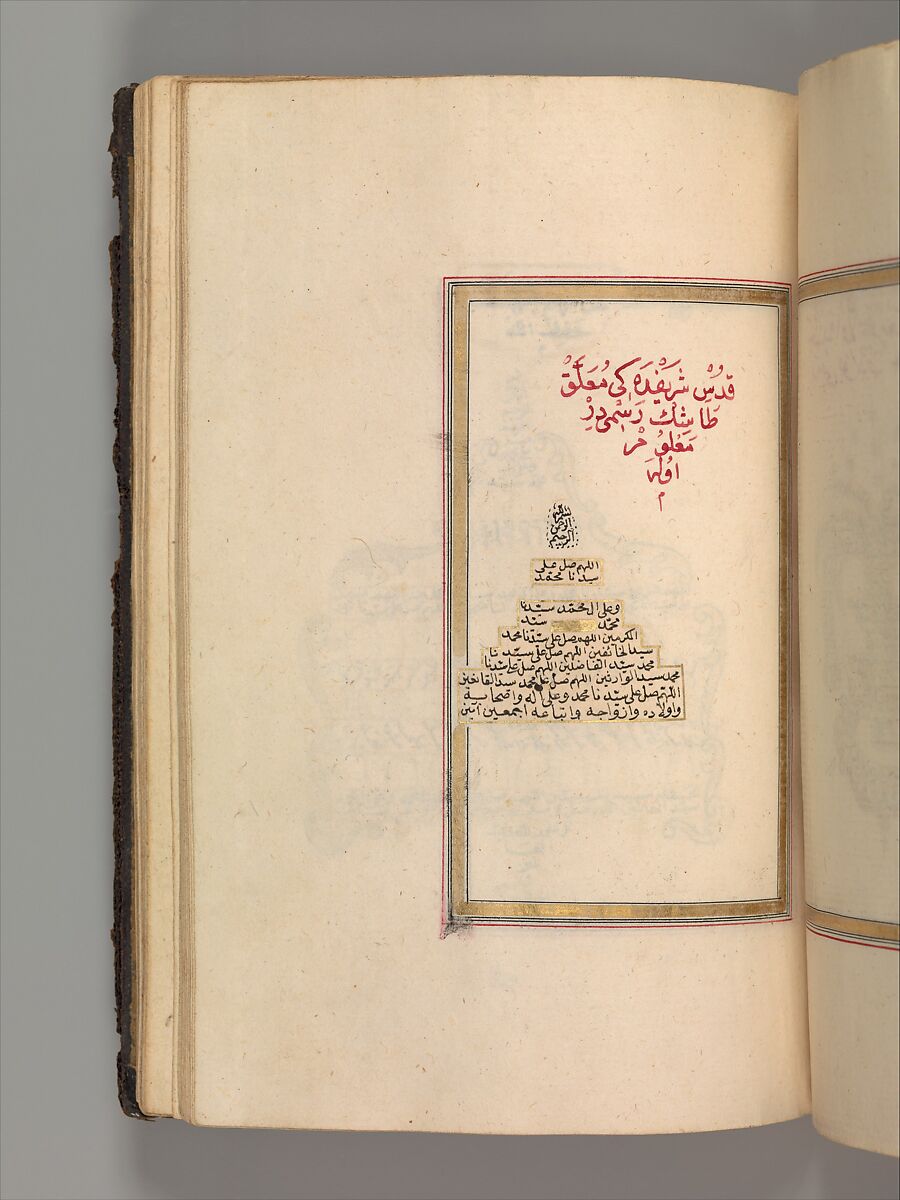 قدُسْ شَريفْدَه كی مُعَلَّقْ
طاشِڭ رَسْمی دِرْ
مَعْلُومْ
اوُلَه
م
بسم الله
الرحمن
الرحيم
اللهم صل على
سيدنا محمد
وعلى ال محمد سيدنا
محمد سيد
الكرمين اللهم صل على سيدنا محمد
سيد الخائفين اللهم صل على سيدنا
محمد سيد الفاضلين اللهم صل على سيدنا
محمد سيد الوارثين اللهم صل على محمد سيد القانتين
اللهم صل على سيدنا محمد وعلى اله واصحابه
واولاده وازواجه واتباعه اجمعين آمين